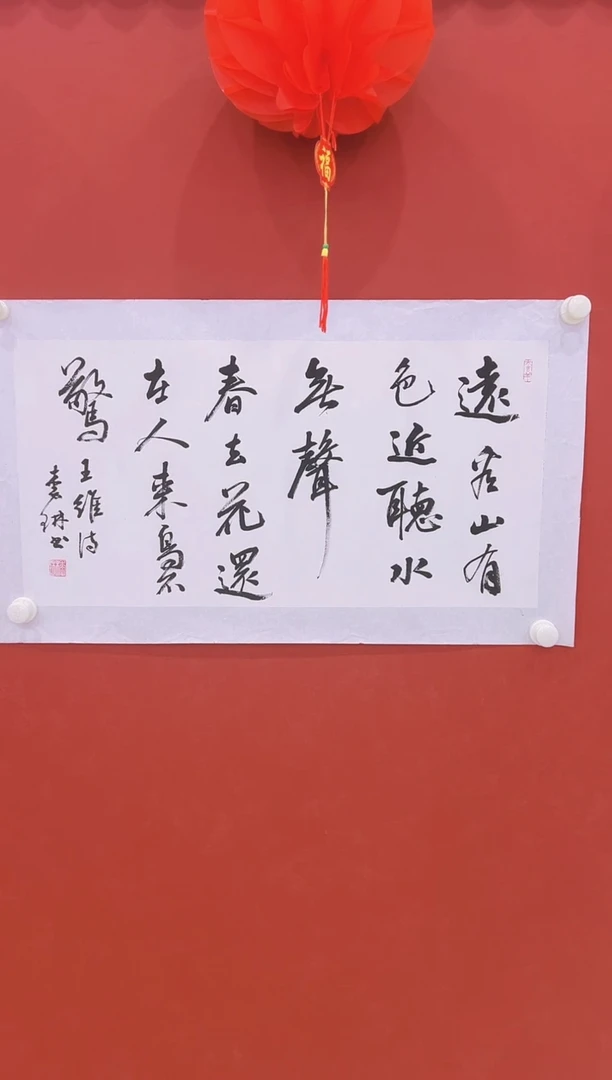 福
遠看山有
色近聽水
無聲
春去花還
在人來鳥不
驚
王維诗
琳书